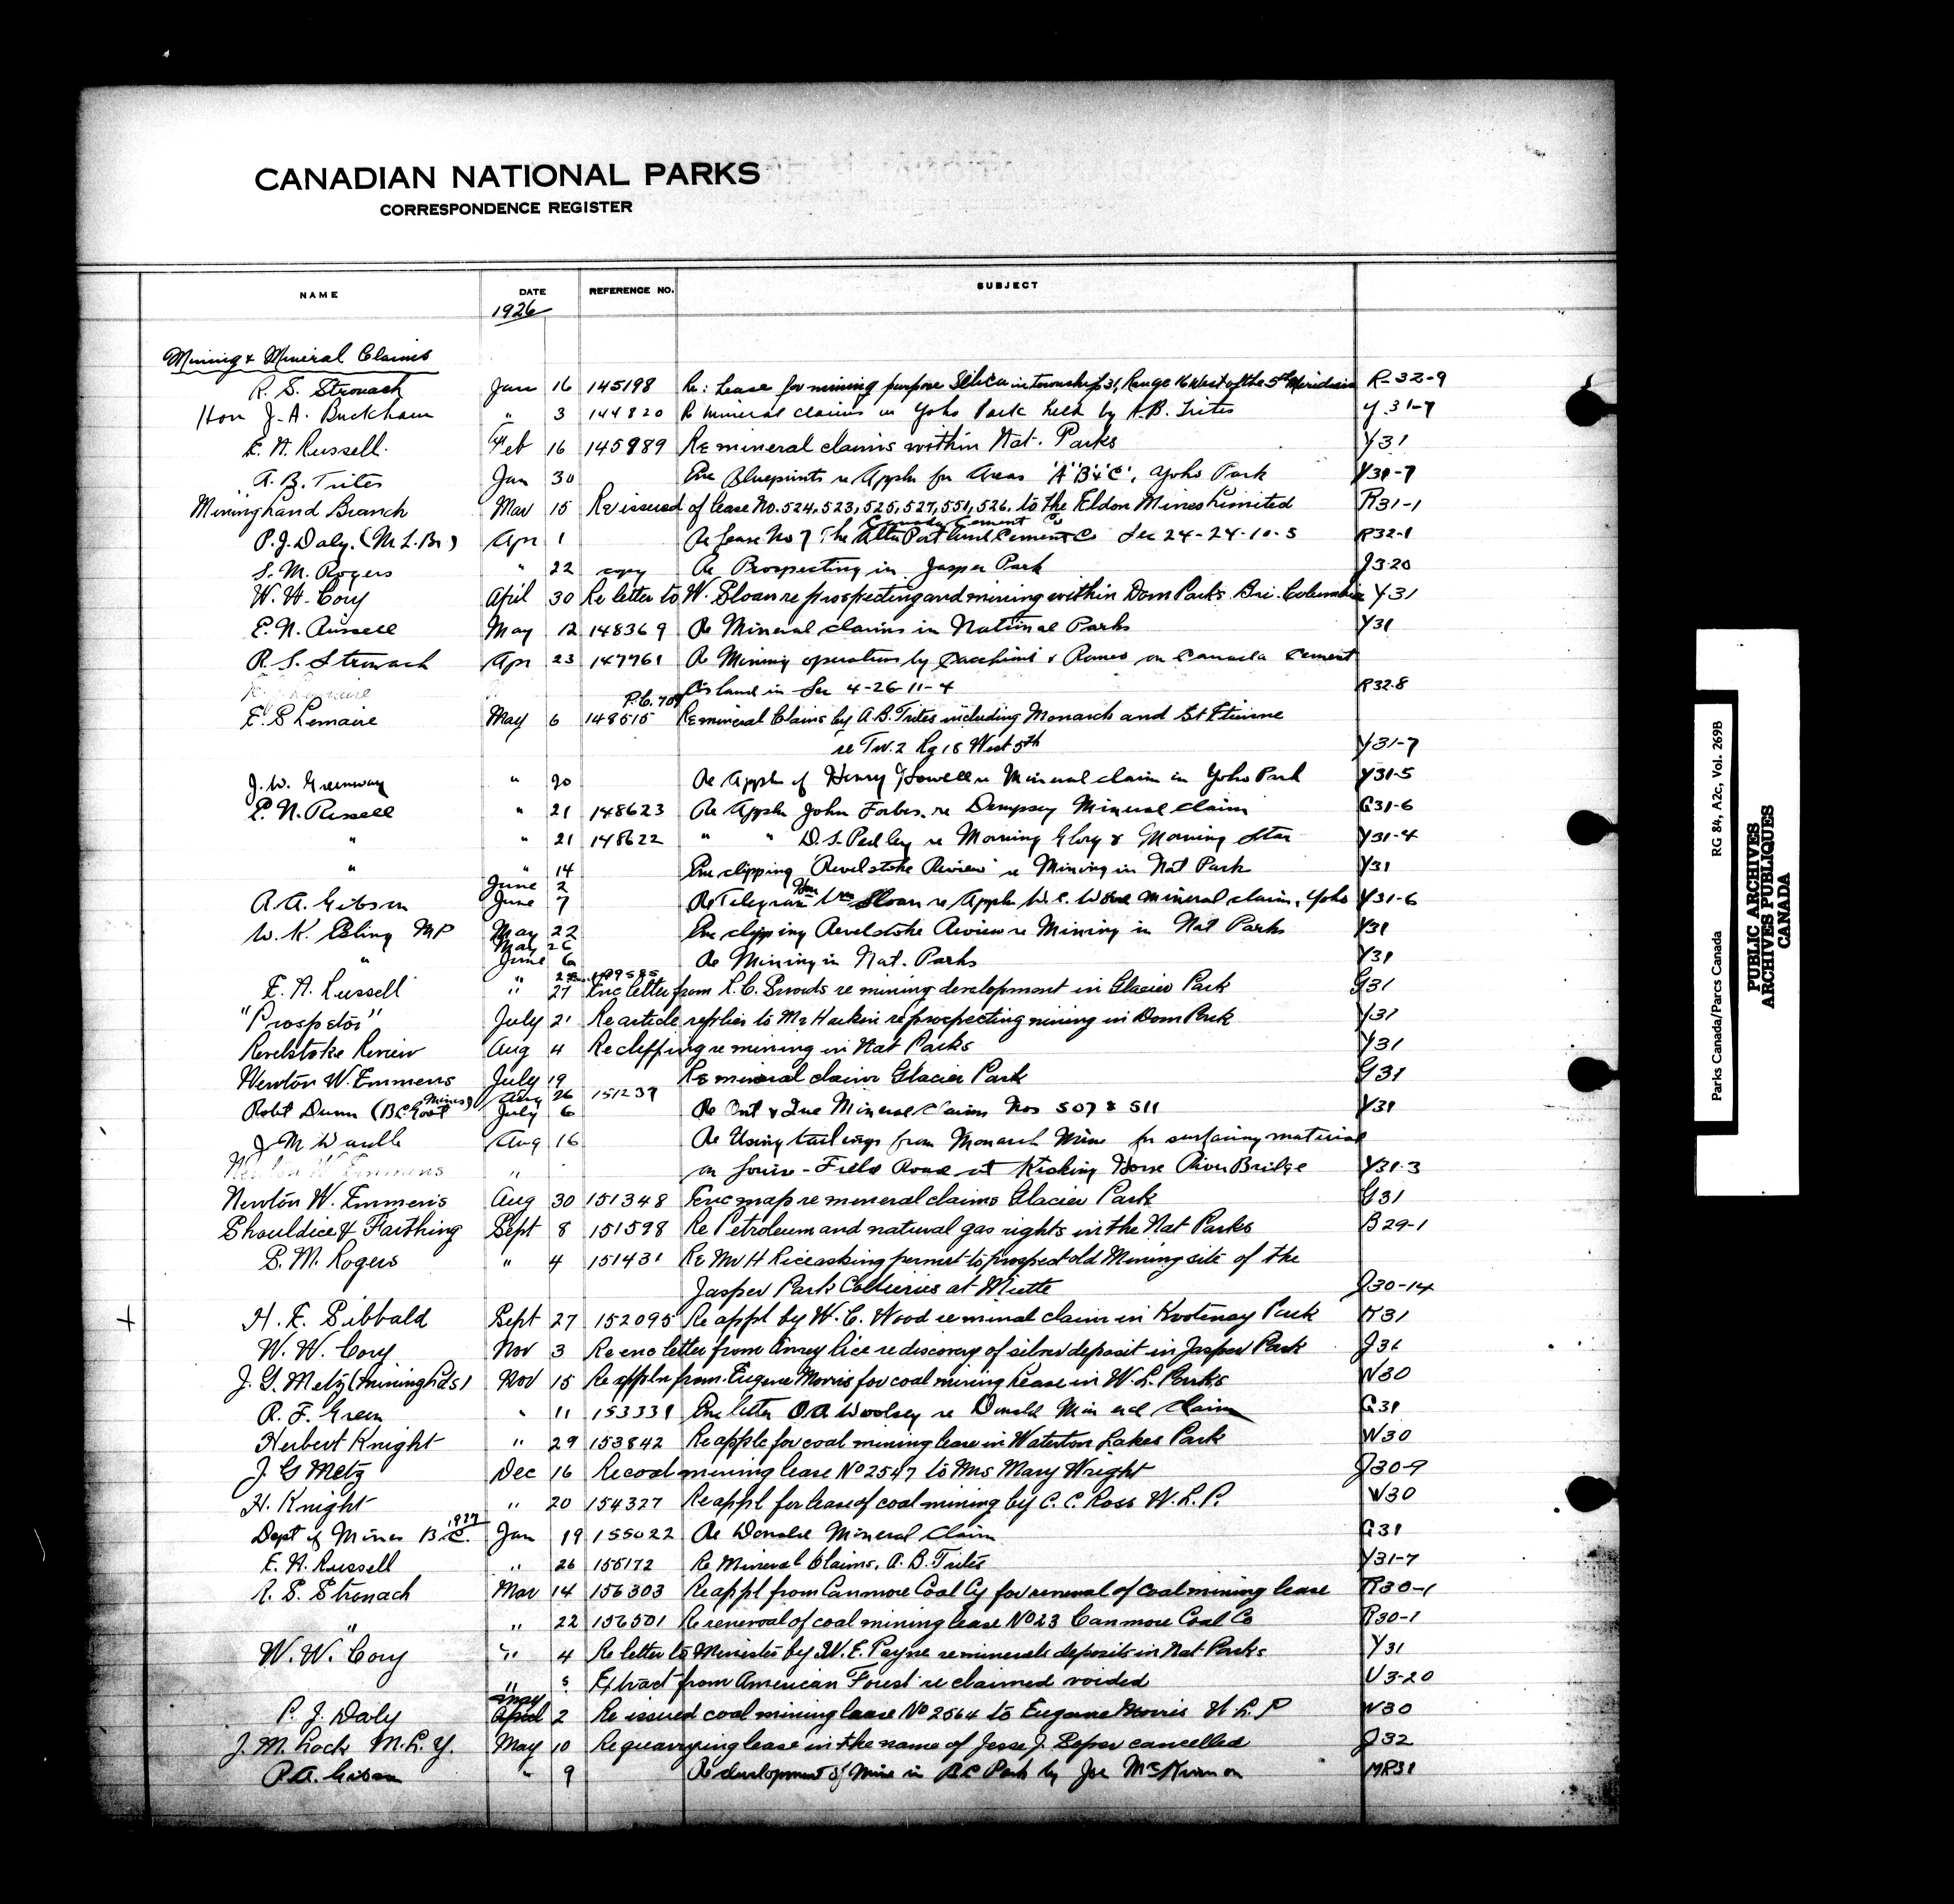 CANADIAN NATIONAL PARKS
CORRESPONDENCE REGISTER
NAME DATE REFERENCE NO. SUBJECT
1926
Mining & Mineral Claims
R. S. Stronach Jan 16 145198 Re: Lease for mining purpose Silica in township 31, Range 16 West of the 5th Meridian R-32-9
Hon J. A. Buckham " 3 144820 Re mineral claims in Yoho Park held by A.B. Trites Y.31-7
E. N. Russell. Feb 16 145989 Re mineral claims within Nat. Parks Y31
A. B. Trites Jan 30 Enc Blueprints re Appln for Areas 'A' 'B' & 'C', Yoho Park Y31-7
Mining Land Branch Mar 15 Re issued of lease No. 524, 523, 525, 527, 551, 526, to the Eldon Mines Limited R31-1
Canada Cement Co
P. J. Daly. (M. L. Br) Apr 1 Re Lease No 7 The Alta Portland Cement Co Sec 24-24-10-5 R32-1
S. M. Rogers " 22 copy Re Prospecting in Jasper Park J3-20
W. W. Cory April 30 Re letter to W. Sloan re prospecting and mining within Dom Parks. Bri. Columbia Y31
E. N. Russell May 12 148369 Re Mineral claims in National Parks Y31
R. S. Stronach Apr 23 147761 Re Mining operations by & Romeo on Canada Cement
Co's land in Sec 4-26-11-4 R32-8
P.C. 709
E. S Lemaire May 6 148515 Re mineral Claims by A.B. Trites including Monarch and St Etienne
re Tw. 2 Rg 18 West 5th Y31-7
J. W. Greenway " 20 Re Appln of Henry Howell re Mineral claim in Yoho Park Y31-5
E. N. Russell " 21 148623 Re Appln John Forbes. re Dempsey Mineral Claim G31-6
" " 21 148622 " " D. S. Pedley re Morning Glory & Morning Star Y31-4
" " 14 Enc clipping 'Revelstoke Review' re Mining in Nat Park Y31
June 2
R. A. Gibson June 7 Re Telegram Hon Wm Sloan re Appln W. C. Wood mineral claim, Yoho Y31-6
W. K. Esling MP May 22 Enc clipping Revelstoke Review re Mining in Nat Parks Y31
May 26
" June 6 Re Mining in Nat. Parks Y31
E. N. Russell " 27 Enc letter from R. C. re mining development in Glacier Park G31
"Prospetor" July 21 Re article replies to Mr Harkin re prospecting mining in Dom Park Y31
Revelstoke Review Aug 4 Re clipping re mining in Nat Parks Y31
Newton W. Emmens July 19 Re mineral claims Glacier Park G31
Aug 26 151239
Robt Dunn (BC Govt Mines) July 6 Re Ont & Que Mineral Claims Nos 507 & 511 Y31
J M Wardle Aug 16 Re Using tailings from Monarch Mine for surfacing material
on Louise-Field Road at Kicking Horse River Bridge Y31-3
Newton W. Emmens "
Newton W. Emmens Aug 30 151348 Enc map re mineral claims Glacier Park G31
Shouldice & Farthing Sept 8 151598 Re Petroleum and natural gas rights in the Nat Parks B29-1
S. M. Rogers " 4 151431 Re Mr H Rice asking permit to prospect old Mining site of the
Jasper Park Collieries at Miette J30-14
+ H. E. Sibbald Sept 27 152095 Re appl by W. C. Wood re minal claim in Kootenay Park K31
W. W. Cory Nov 3 Re enc letter from Rice re discovery of silver deposit in Jasper Park J31
J. G. Metz (Mining Lds) Nov 15 Re appln from Eugene Morris for coal mining Lease in W. L. Parks W30
R. F. Green " 11 153331 Enc letter O.A. Woolsey re Donald Mineral Claim G31
Herbert Knight " 29 153842 Re applc for coal mining lease in Waterton Lakes Park W30
J. G Metz Dec 16 Re coal mining lease No 2547 to Mrs Mary Wright J30-9
H. Knight " 20 154327 Re appl for lease of coal mining by C. C. Ross W. L. P. W30
1927
Dept of Mines B.C. Jan 19 155022 Re Donald Mineral Claim G31
E. N. Russell " 26 155172 Re Mineral Claims. A. B. Trites Y31-7
R. S. Stronach Mar 14 156303 Re appl from Canmore Coal Cy for renewal of coal mining lease R30-1
" " 22 156501 Re renewal of coal mining lease No 23 Canmore Coal Co R30-1
W. W. Cory " 4 Re letter to Minister by W. E. Payne re minerals deposits in Nat Parks Y31
" 5 Extract from American Forest re claimed voided U3-20
May
P. J. Daly April 2 Re issued coal mining lease No 2564 to Eugene Morris W. L. P W30
J. M. Lock M. L. Y. May 10 Re quarrying lease in the name of Jesse J. Soper cancelled J32
R. A. Gibson " 9 Re development of Mine in BC Park by Joe McKinnon MR31
Parks Canada/Parcs Canada RG 84, A2c, Vol. 269B
PUBLIC ARCHIVES
ARCHIVES PUBLIQUES
CANADA